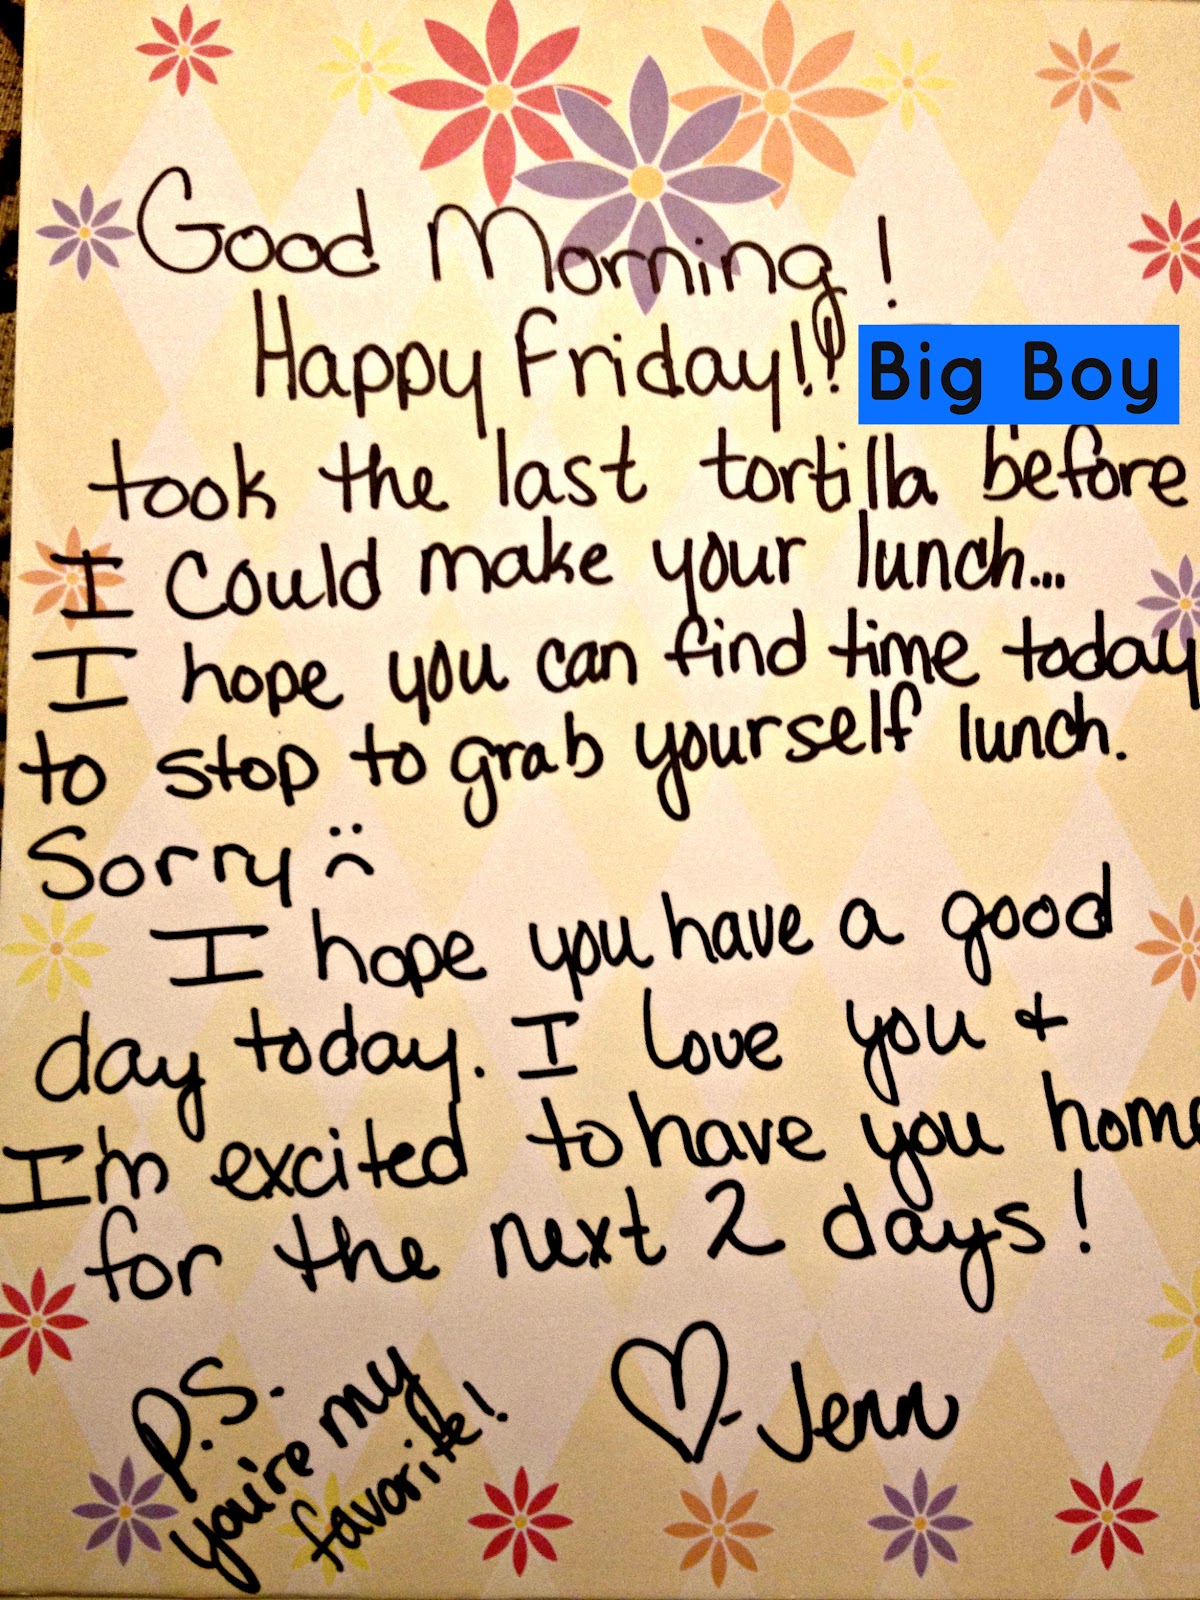 Good Morning!
Happy Friday!! Big Boy
took the last tortilla before
I could make your lunch...
I hope you can find time today
to stop to grab yourself lunch.
Sorry :(
I hope you have a good
day today. I love you &
I'm excited to have you home
for the next 2 days!
♡-Jenn
P.S.
you're my
favorite!